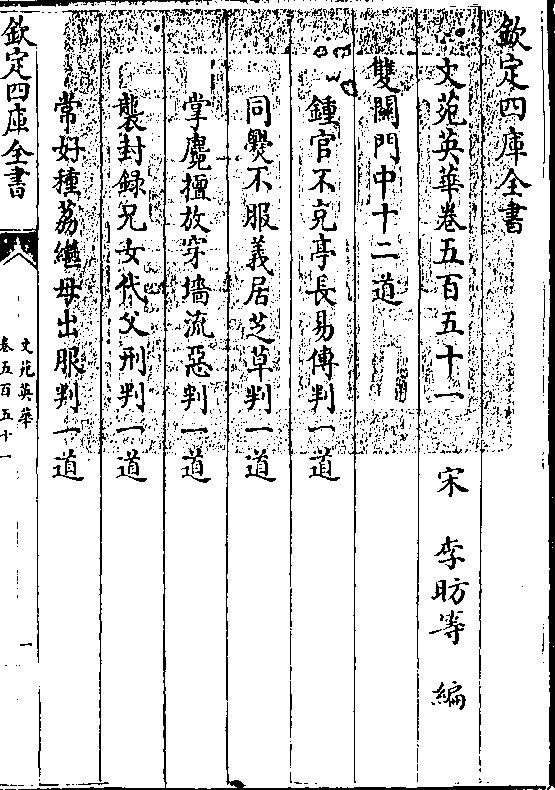 欽定四庫全書
文苑英華卷五百五十一
宋 李昉等 編
雙關門中十二道
鍾官不克亭長易傳判一道
同爨不服義居芝草判一道
掌麑擅放穿墻流惡判一道
襲封錄兄女代父刑判一道
常好種荔繼母出服判一道
欽定四庫全書
文苑英華
卷五百五十一
一